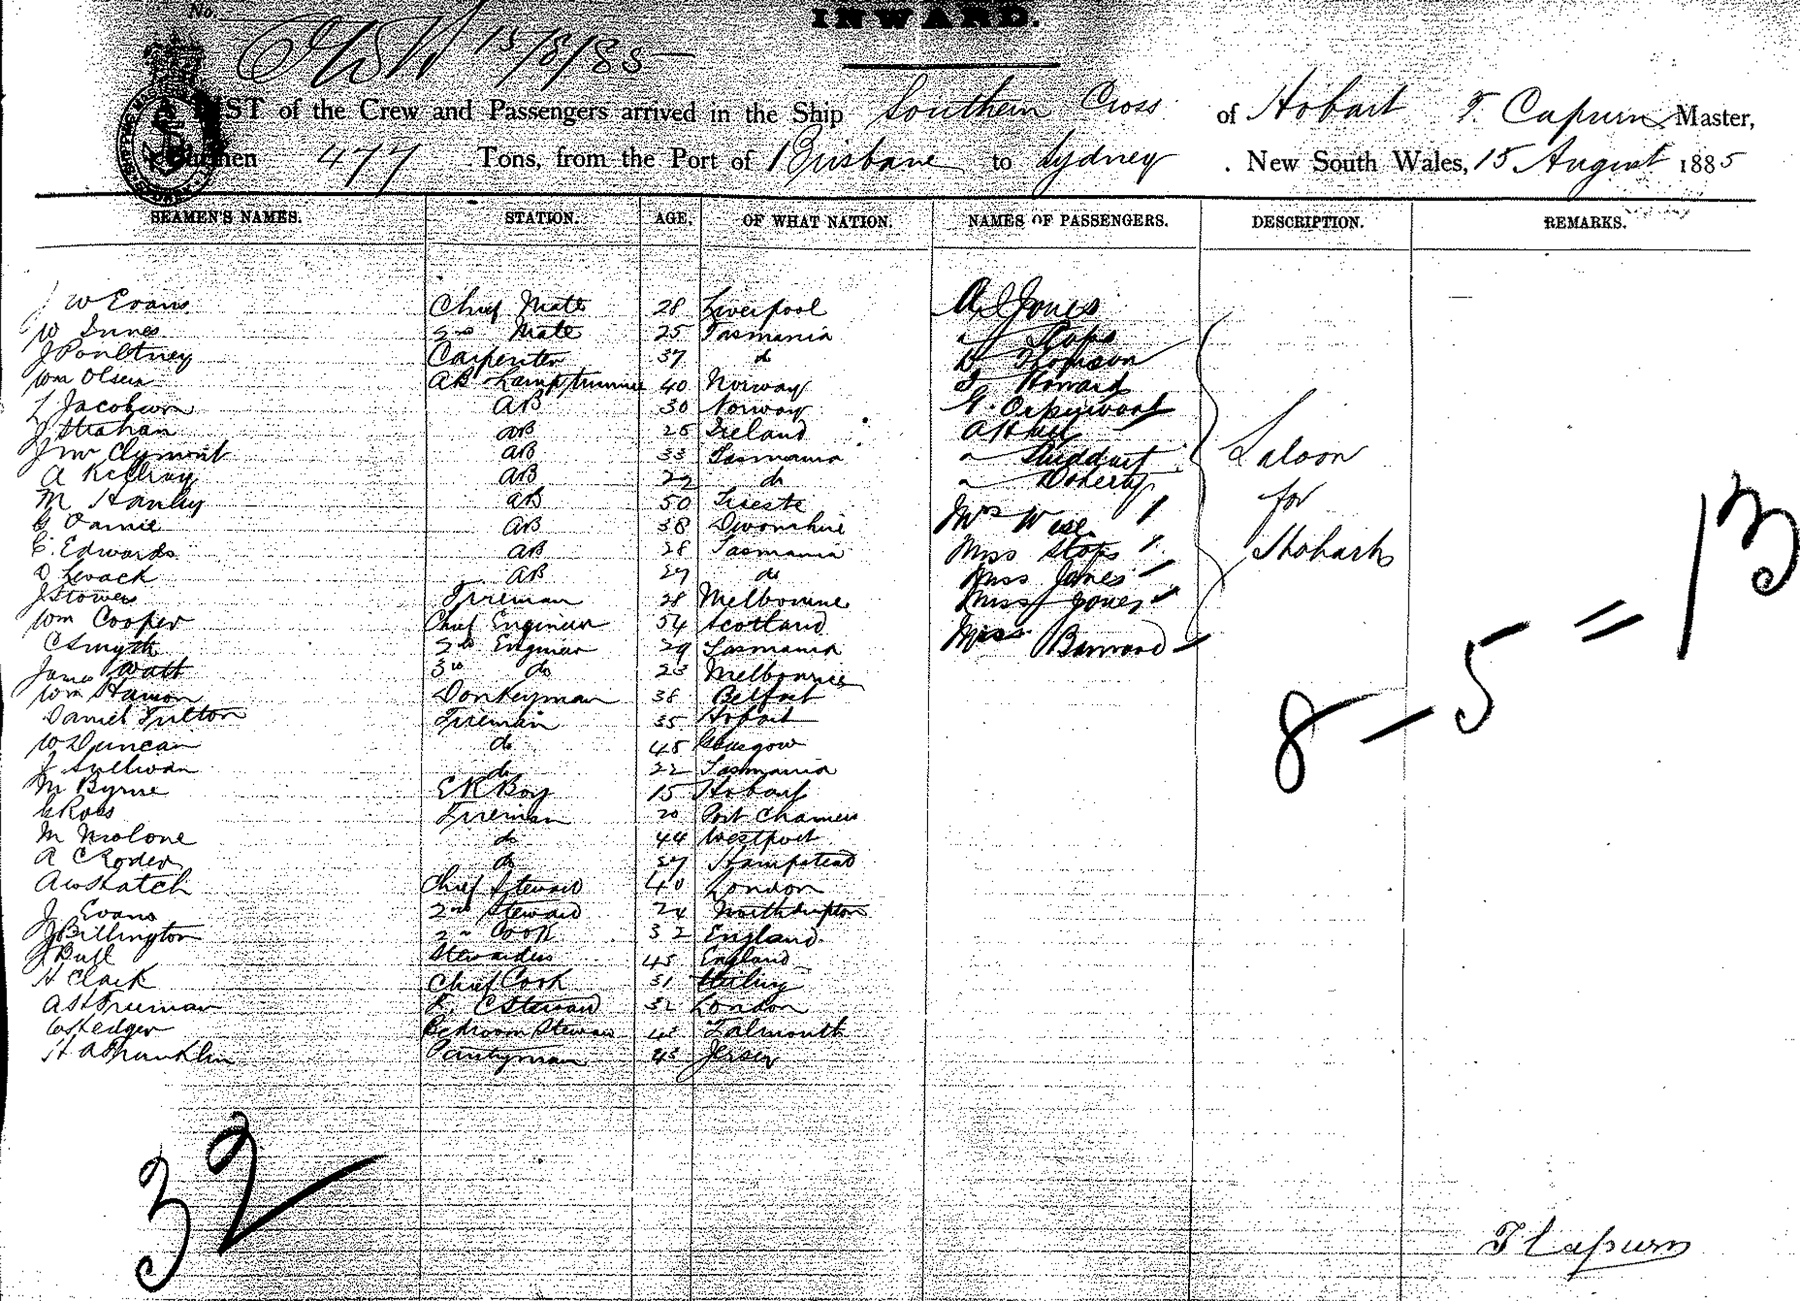 No.
INWARD.
15/8/85
LIST of the Crew and Passengers arrived in the Ship Southern Cross of Hobart T. Capurn Master,
Burthen 477 Tons, from the Port of Brisbane to Sydney. New South Wales, 15 August 1885
SEAMEN'S NAMES. STATION. AGE. OF WHAT NATION. NAMES OF PASSENGERS. DESCRIPTION. REMARKS.
J W Evans Chief Mate 28 Liverpool A Jones
W Innes 2nd Mate 25 Tasmania " Stops
J Poultney Carpenter 37 do D Thomson
Wm Olsen AB Lamptrimmer 40 Norway Howard
L Jacobson AB 30 Norway G.
J Strahan AB 25 Ireland
J Mc Clymont AB 33 Tasmania "
A AB 22 do " Doherty
M Hanley AB 50 Trieste Mrs Wise
G AB 38 Devonshire Miss Stops
E. Edwards AB 28 Tasmania Miss Jones
D Levack AB 27 do Miss Jones
J Stower Fireman 28 Melbourne
Wm Cooper Chief Engineer 54 Scotland Miss Barnard
C Smyth 2nd Engineer 29 Tasmania
James Watt 3rd do 23 Melbourne
Wm Donkeyman 38 Belfast
Daniel Fulton Fireman 35 Hobart
W Duncan do 45 Glasgow
J Sullivan do 22 Tasmania
M Byrne ER Boy 15 Hobart
G Ross Fireman 20 Port Chamers
M Malone do 44 Westport
A do 27 Hampstead
A W Hatch Chief Steward 40 London
J Evans 2nd Steward 24 Northampton
J Billington 2nd Cook 32 England
J Bull Stewardess 45 England
H Clark Chief Cook 31
A S Freeman C Steward 32 London
Ledger Bedroom Steward 43 Falmouth
H A Franklin Pantryman 45 Jersey
Saloon
for
Hobart
8 - 5 = 13
32
T Capurn